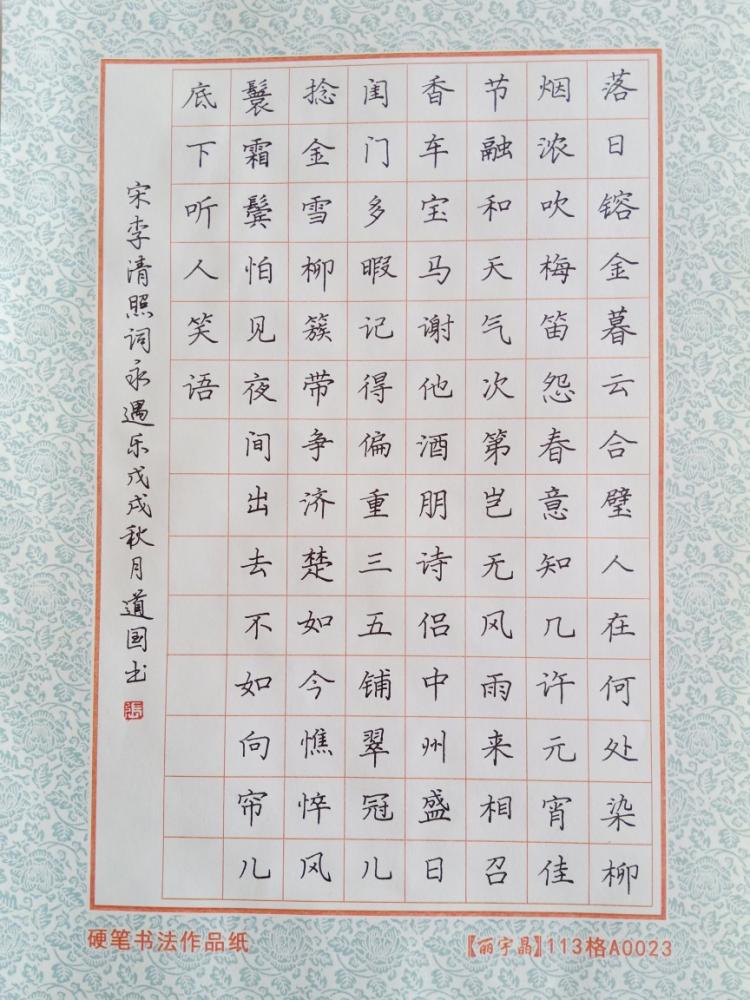 落日镕金暮云合璧人在何处染柳
烟浓吹梅笛怨春意知几许元宵佳
节融和天气次第岂无风雨来相召
香车宝马谢他酒朋诗侣中州盛日
闺门多暇记得偏重三五铺翠冠儿
捻金雪柳簇带争济楚如今憔悴风
鬟霜鬓怕见夜间出去不如向帘儿
底下听人笑语
宋李清照词永遇乐戊戌秋月道国书
張
硬笔书法作品纸
【丽宇晶】113格A0023